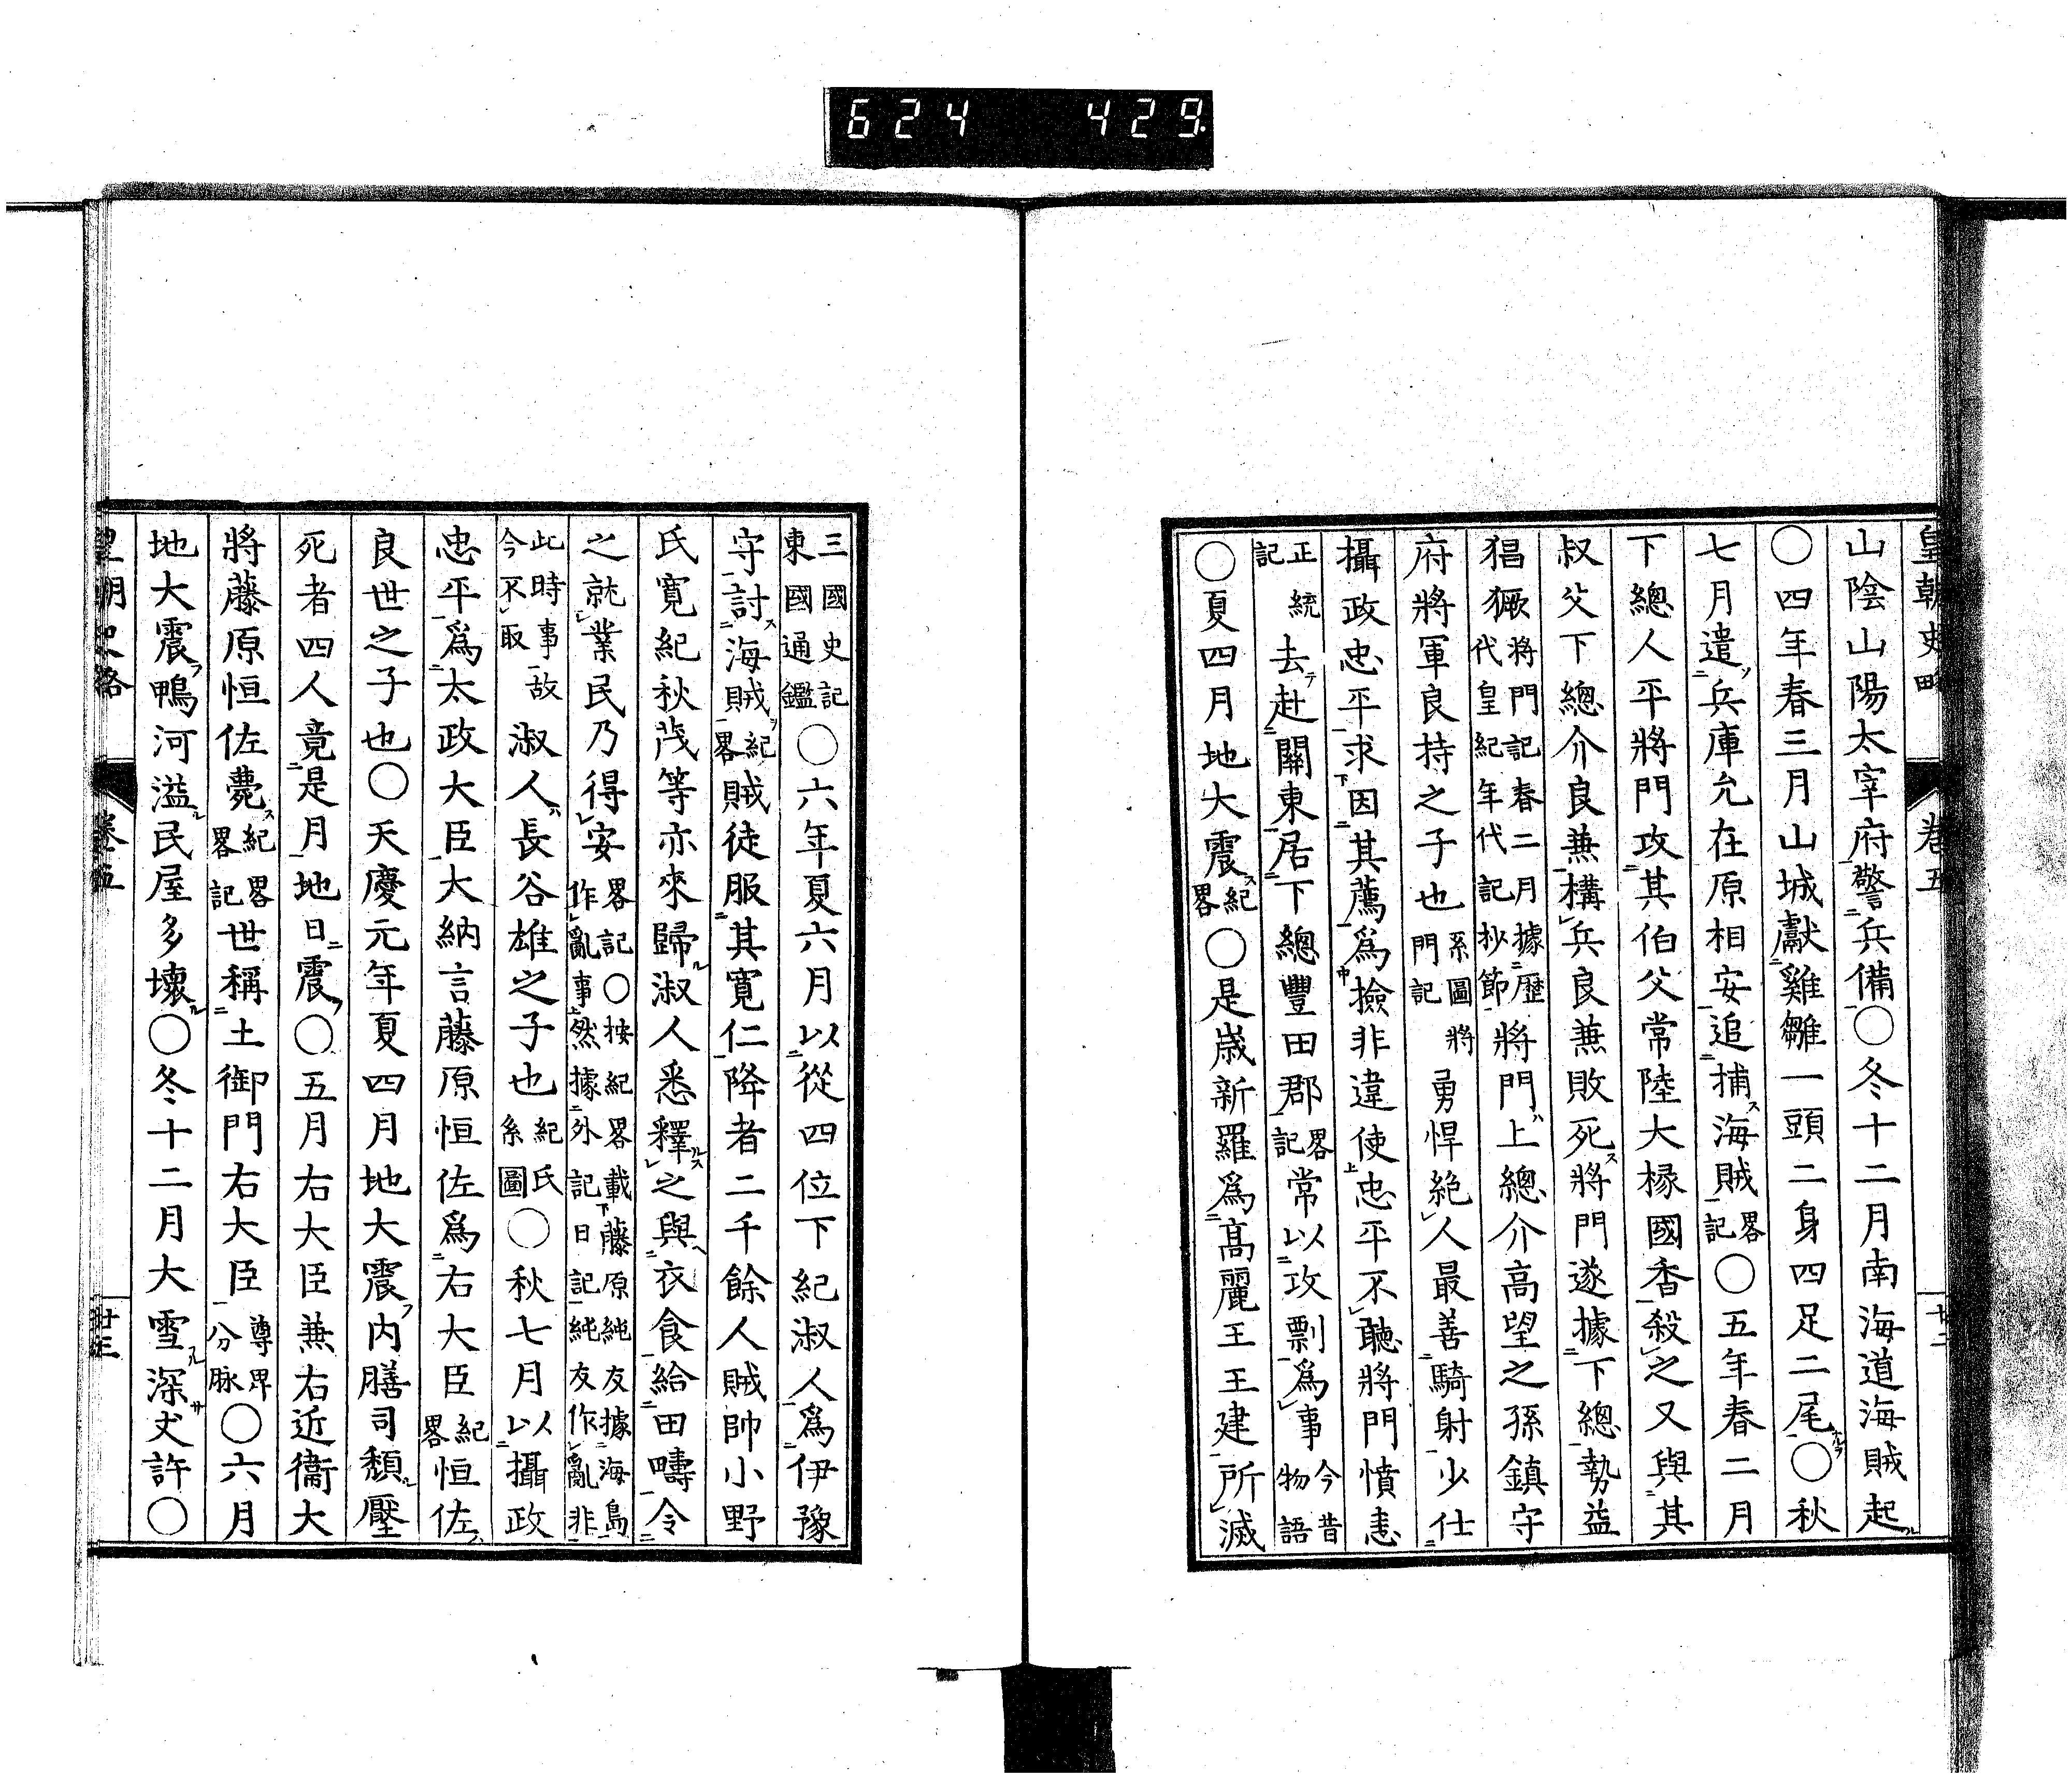 624 429
皇朝史略 卷五 廿二
山陰山陽太宰府警兵備○冬十二月南海道海賊起
○四年春三月山城獻雞雛一頭二身四足二尾○秋
七月遣兵庫允在原相安追捕海賊略記○五年春二月
下總人平將門攻其伯父常陸大椽國香殺之又與其
叔父下總介良兼構兵良兼敗死將門遂據下總勢益
猖獗將門記春二月據歷代皇紀年代記抄節將門上總介高望之孫鎮守
府將軍良持之子也系圖將門記勇悍絶人最善騎射少仕
攝政忠平求因其薦爲撿非違使忠平不聽將門憤恚
正統記去赴關東居下總豐田郡畧記常以攻剽爲事今昔物語
○夏四月地大震紀畧○是歲新羅爲高麗王王建所滅
三國史記東國通鑑○六年夏六月以從四位下紀淑人爲伊豫
守討海賊紀畧賊徒服其寬仁降者二千餘人賊帥小野
氏寬紀秋茂等亦來歸淑人悉釋之與衣食給田疇令
之就業民乃得安畧記○按紀畧載藤原純友據海島作亂事然據外記日記純友作亂非
此時事故今不取淑人長谷雄之子也紀氏系圖○秋七月以攝政
忠平爲太政大臣大納言藤原恒佐爲右大臣紀畧恒佐
良世之子也○天慶元年夏四月地大震內膳司頹壓
死者四人竟是月地日震○五月右大臣兼右近衞大
將藤原恒佐薨紀畧畧記世稱土御門右大臣尊卑分脉○六月
地大震鴨河溢民屋多壞○冬十二月大雪深丈許○
皇朝史略 卷五 廿三